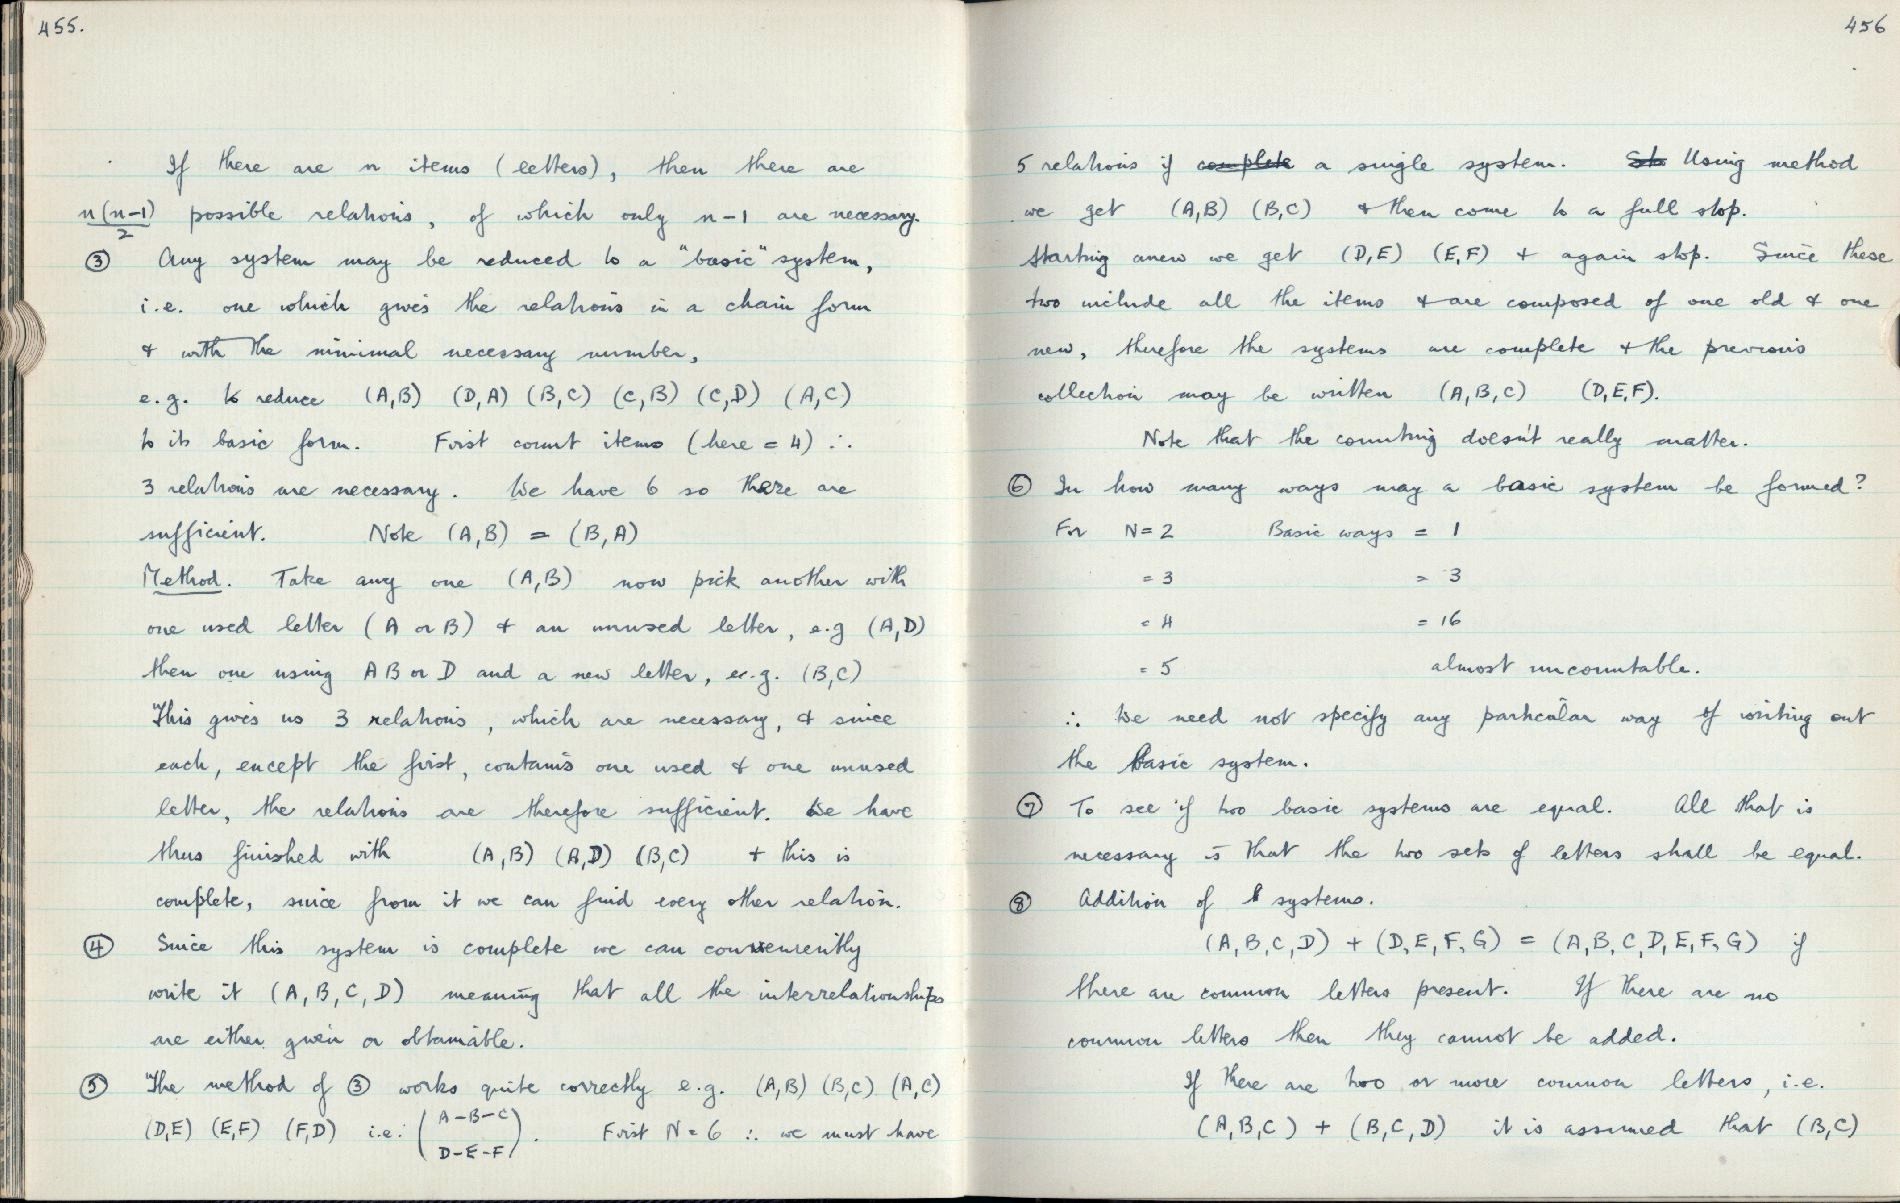 455.
If there are n items (letters), then there are
n(n-1)/2 possible relations, of which only n-1 are necessary.
③ Any system may be reduced to a "basic" system,
i.e. one which gives the relations in a chain form
& with the minimal necessary number,
e.g. to reduce (A,B) (D,A) (B,C) (C,B) (C,D) (A,C)
to its basic form. First count items (here = 4) ∴
3 relations are necessary. We have 6 so there are
sufficient. Note (A,B) = (B,A)
Method. Take any one (A,B) now pick another with
one used letter (A or B) & an unused letter, e.g (A,D)
then one using A B or D and a new letter, e.g. (B,C)
This gives us 3 relations, which are necessary, & since
each, except the first, contains one used & one unused
letter, the relations are therefore sufficient. We have
thus finished with (A,B) (A,D) (B,C) & this is
complete, since from it we can find every other relation.
④ Since this system is complete we can conveniently
write it (A,B,C,D) meaning that all the interrelationships
are either given or obtainable.
⑤ The method of ③ works quite correctly e.g. (A,B) (B,C) (A,C)
(D,E) (E,F) (F,D) i.e. (A-B-C
D-E-F). First N=6 ∴ we must have
456
5 relations if complete a single system. Sta Using method
we get (A,B) (B,C) & then come to a full stop.
Starting anew we get (D,E) (E,F) & again stop. Since these
two include all the items & are composed of one old & one
new, therefore the systems are complete & the previous
collection may be written (A,B,C) (D,E,F).
Note that the counting doesn't really matter.
⑥ In how many ways may a basic system be formed?
For N=2 Basic ways = 1
= 3 = 3
= 4 = 16
= 5 almost uncountable.
∴ We need not specify any particular way of writing out
the Basic system.
⑦ To see if two basic systems are equal. All that is
necessary is that the two sets of letters shall be equal.
⑧ Addition of systems.
(A,B,C,D) + (D,E,F,G) = (A,B,C,D,E,F,G) if
there are common letters present. If there are no
common letters then they cannot be added.
If there are two or more common letters, i.e.
(A,B,C) + (B,C,D) it is assumed that (B,C)